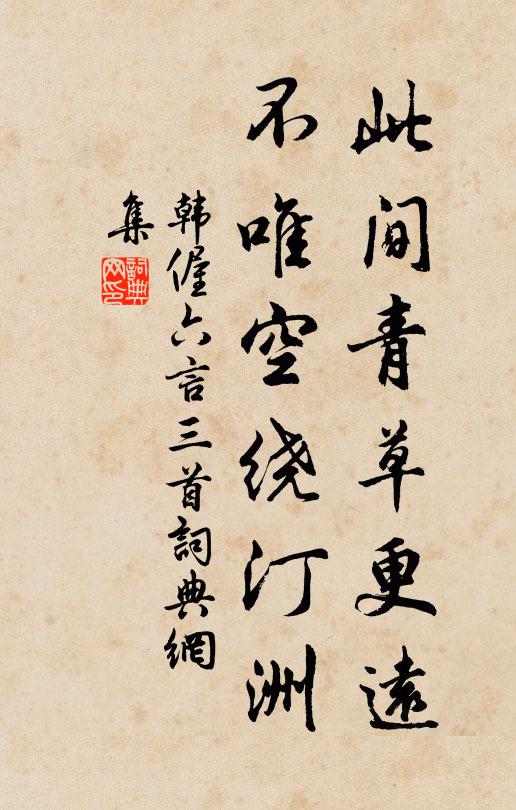 此间青草更遠
不唯空绕汀洲
韩偓六言三首詞典網
集
詞典网印